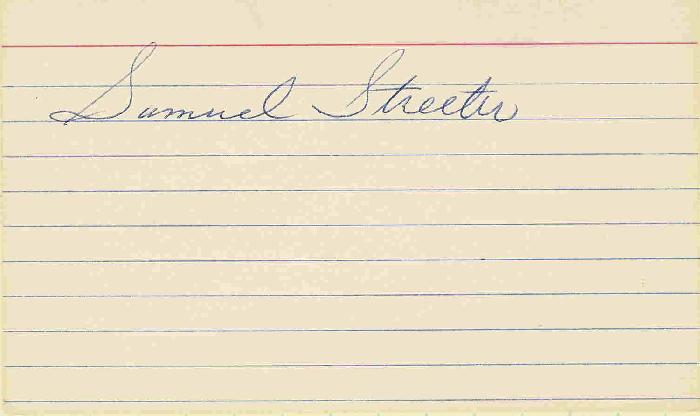 Samuel Streeter